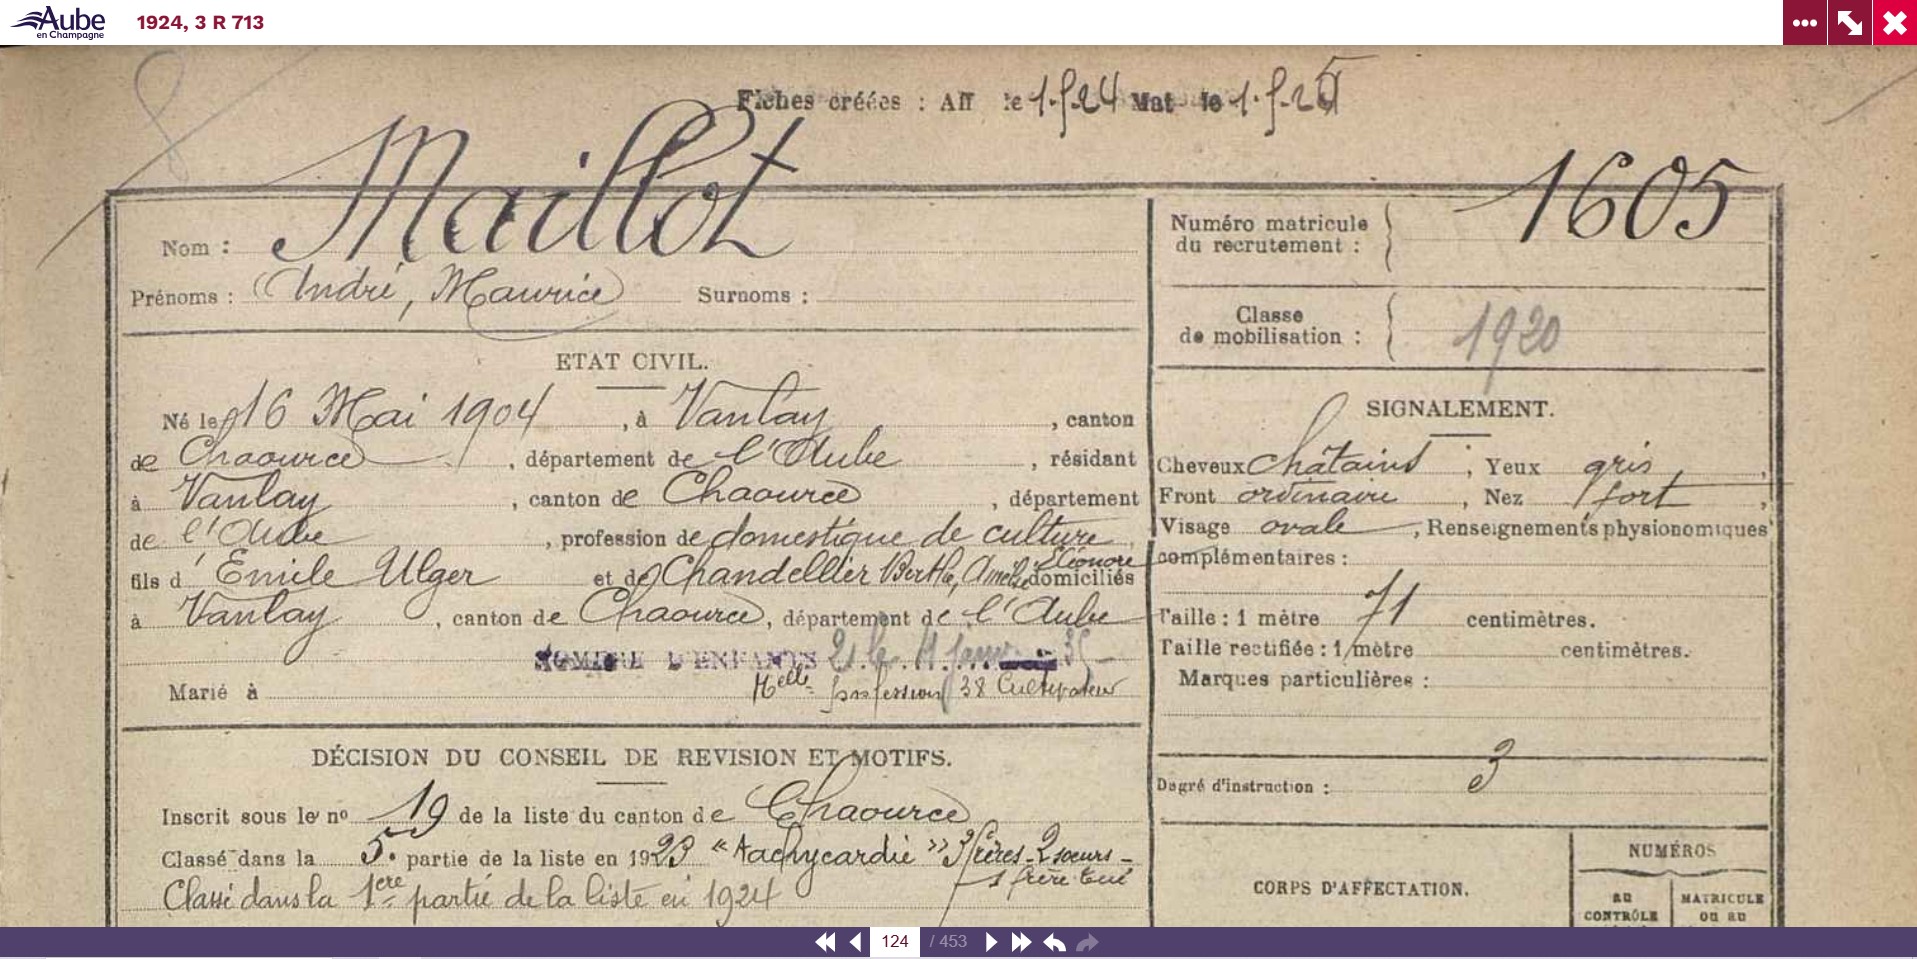 Aube
en Champagne
1924, 3 R 713
8
Fiches créées : Aff le 1.9.24 Mat le 1.9.24
Maillot
Nom :
Prénoms : André, Maurice Surnoms :
Numéro matricule
du recrutement : 1605
Classe
de mobilisation : 1920
ETAT CIVIL.
Né le 16 Mai 1904, à Vanlay, canton
de Chaource, département de l'Aube, résidant
à Vanlay, canton de Chaource, département
de l'Aube, profession de domestique de culture
fils d'Emile Ulger et de Chandellier Berthe, Amélie Eléonore domiciliés
à Vanlay, canton de Chaource, département de l'Aube
NOMBRE D'ENFANTS 2 le 11 janv. 35
Marié à
profession 38 Cultivateur
SIGNALEMENT.
Cheveux châtains, Yeux gris,
Front ordinaire, Nez fort,
Visage ovale, Renseignements physionomiques
complémentaires :
Taille : 1 mètre 71 centimètres.
Taille rectifiée : 1 mètre centimètres.
Marques particulières :
Degré d'instruction : 3
DÉCISION DU CONSEIL DE REVISION ET MOTIFS.
Inscrit sous le nº 19 de la liste du canton de Chaource
Classé dans la 5. partie de la liste en 1923 "Tachycardie" 3 frères - 2 soeurs -
1 frère tué
Classé dans la 1ere partie de la liste en 1924
CORPS D'AFFECTATION.
NUMÉROS
au
CONTRÔLE
MATRICULE
ou au
124 / 453